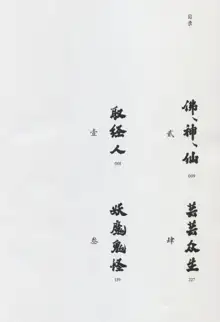 目录
壹
取经人
贰
佛、神、仙
叁
妖魔鬼怪
肆
芸芸众生
227